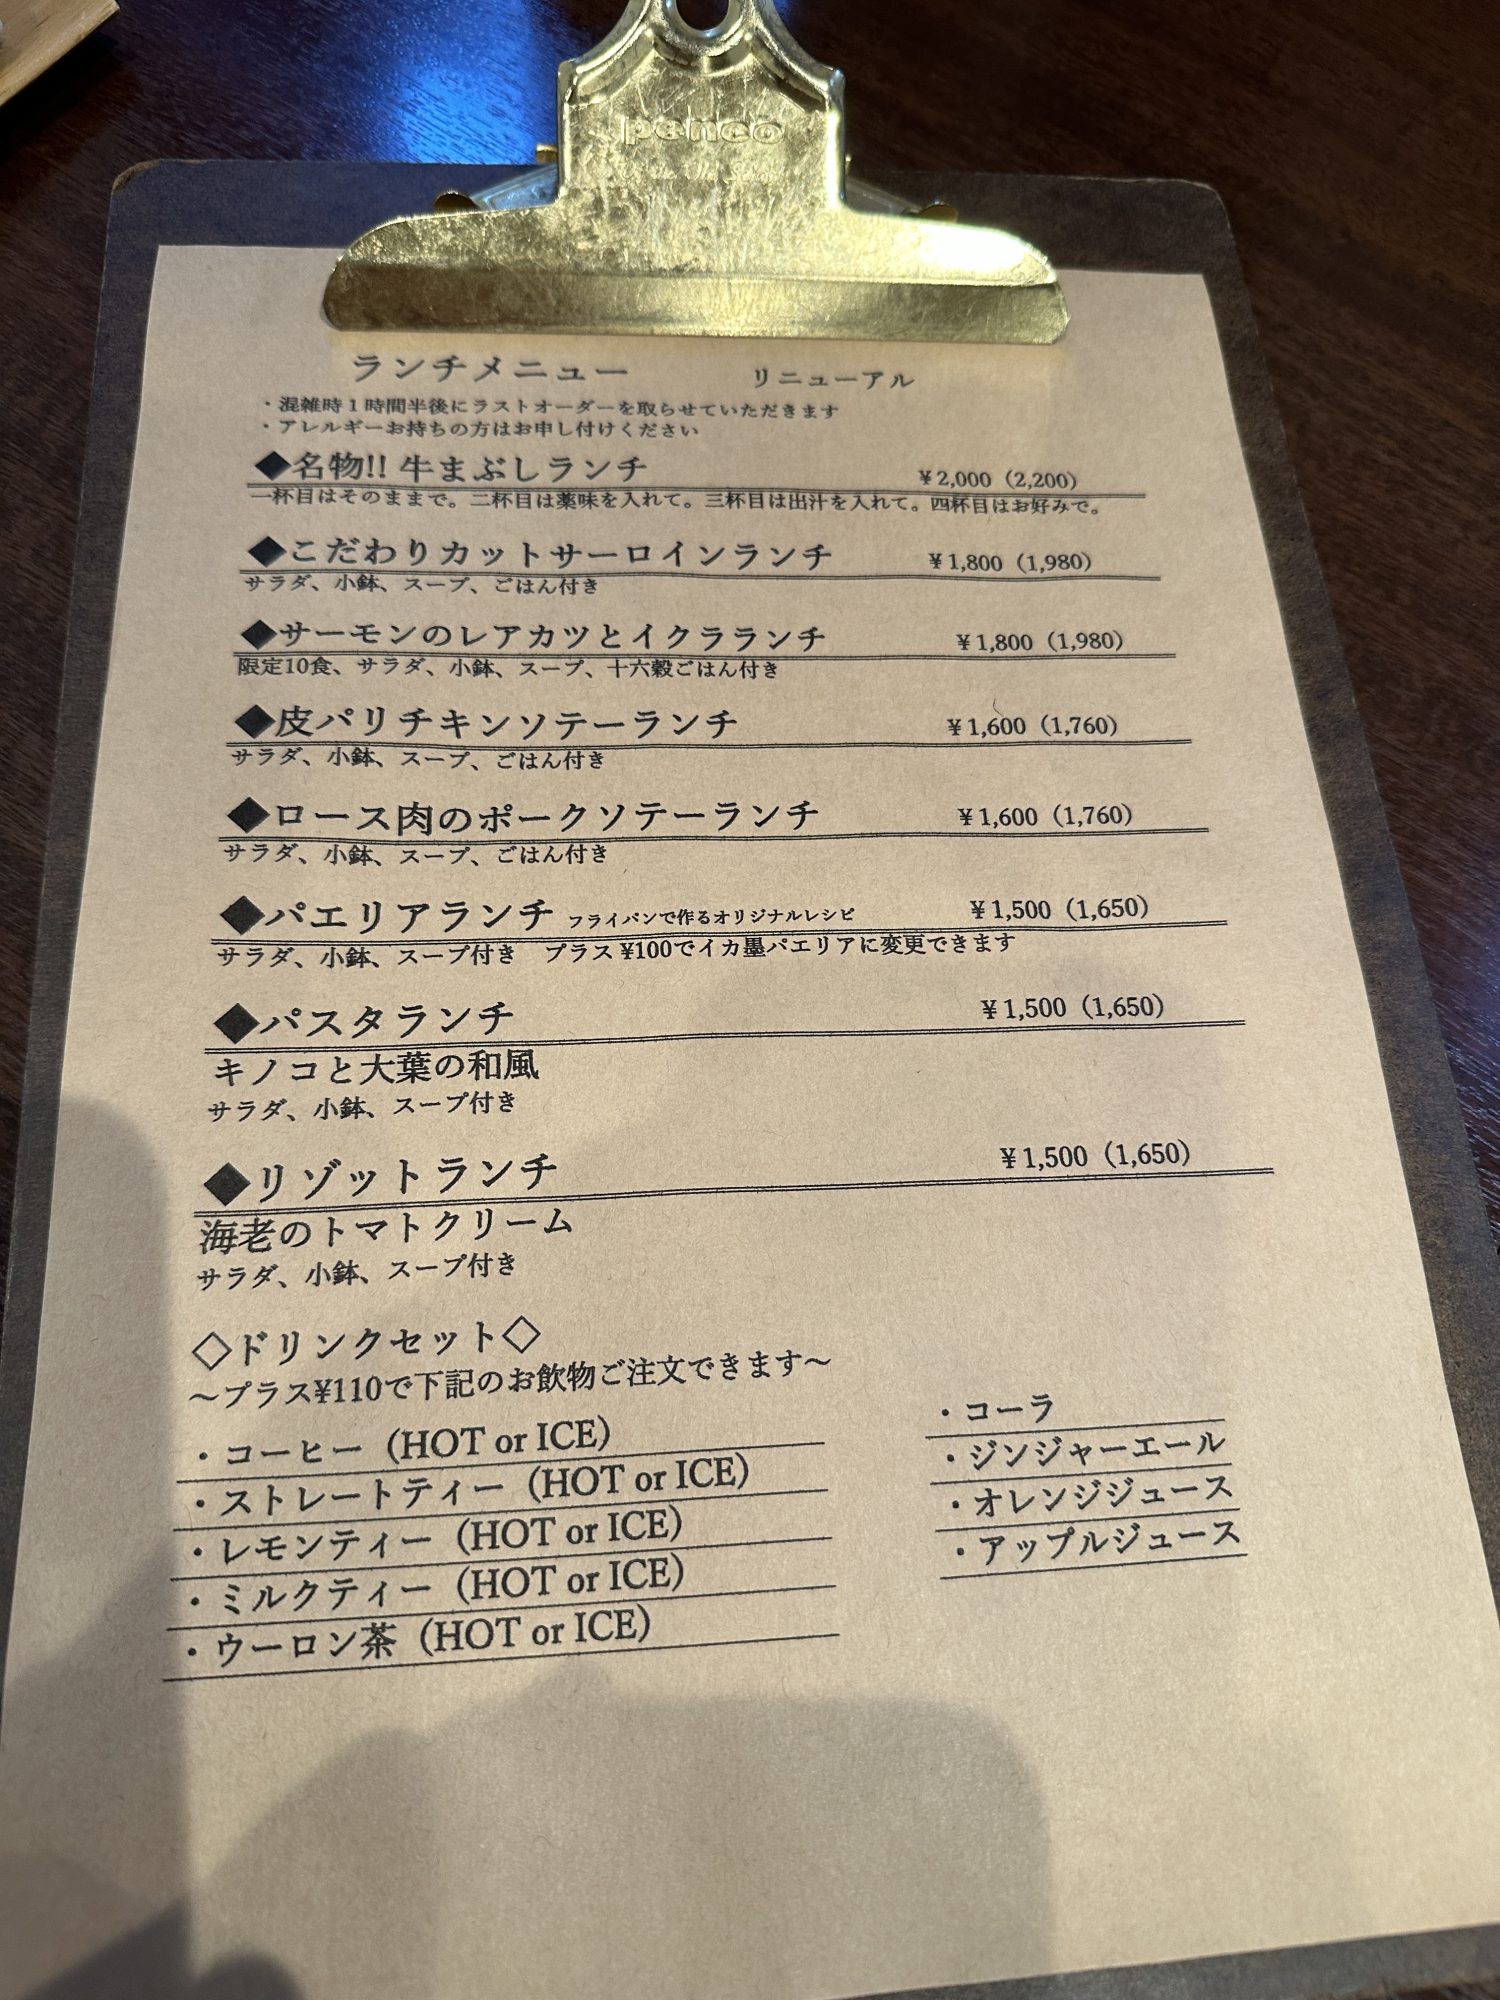 penco
ランチメニュー リニューアル
・混雑時1時間半後にラストオーダーを取らせていただきます
・アレルギーお持ちの方はお申し付けください
◆名物!! 牛まぶしランチ ¥2,000（2,200）
一杯目はそのままで。二杯目は薬味を入れて。三杯目は出汁を入れて。四杯目はお好みで。
◆こだわりカットサーロインランチ ¥1,800（1,980）
サラダ、小鉢、スープ、ごはん付き
◆サーモンのレアカツとイクラランチ ¥1,800（1,980）
限定10食、サラダ、小鉢、スープ、十六穀ごはん付き
◆皮パリチキンソテーランチ ¥1,600（1,760）
サラダ、小鉢、スープ、ごはん付き
◆ロース肉のポークソテーランチ ¥1,600（1,760）
サラダ、小鉢、スープ、ごはん付き
◆パエリアランチ フライパンで作るオリジナルレシピ ¥1,500（1,650）
サラダ、小鉢、スープ付き　プラス¥100でイカ墨パエリアに変更できます
◆パスタランチ ¥1,500（1,650）
キノコと大葉の和風
サラダ、小鉢、スープ付き
◆リゾットランチ ¥1,500（1,650）
海老のトマトクリーム
サラダ、小鉢、スープ付き
◇ドリンクセット◇
～プラス¥110で下記のお飲物ご注文できます～
・コーヒー（HOT or ICE）
・ストレートティー（HOT or ICE）
・レモンティー（HOT or ICE）
・ミルクティー（HOT or ICE）
・ウーロン茶（HOT or ICE）
・コーラ
・ジンジャーエール
・オレンジジュース
・アップルジュース